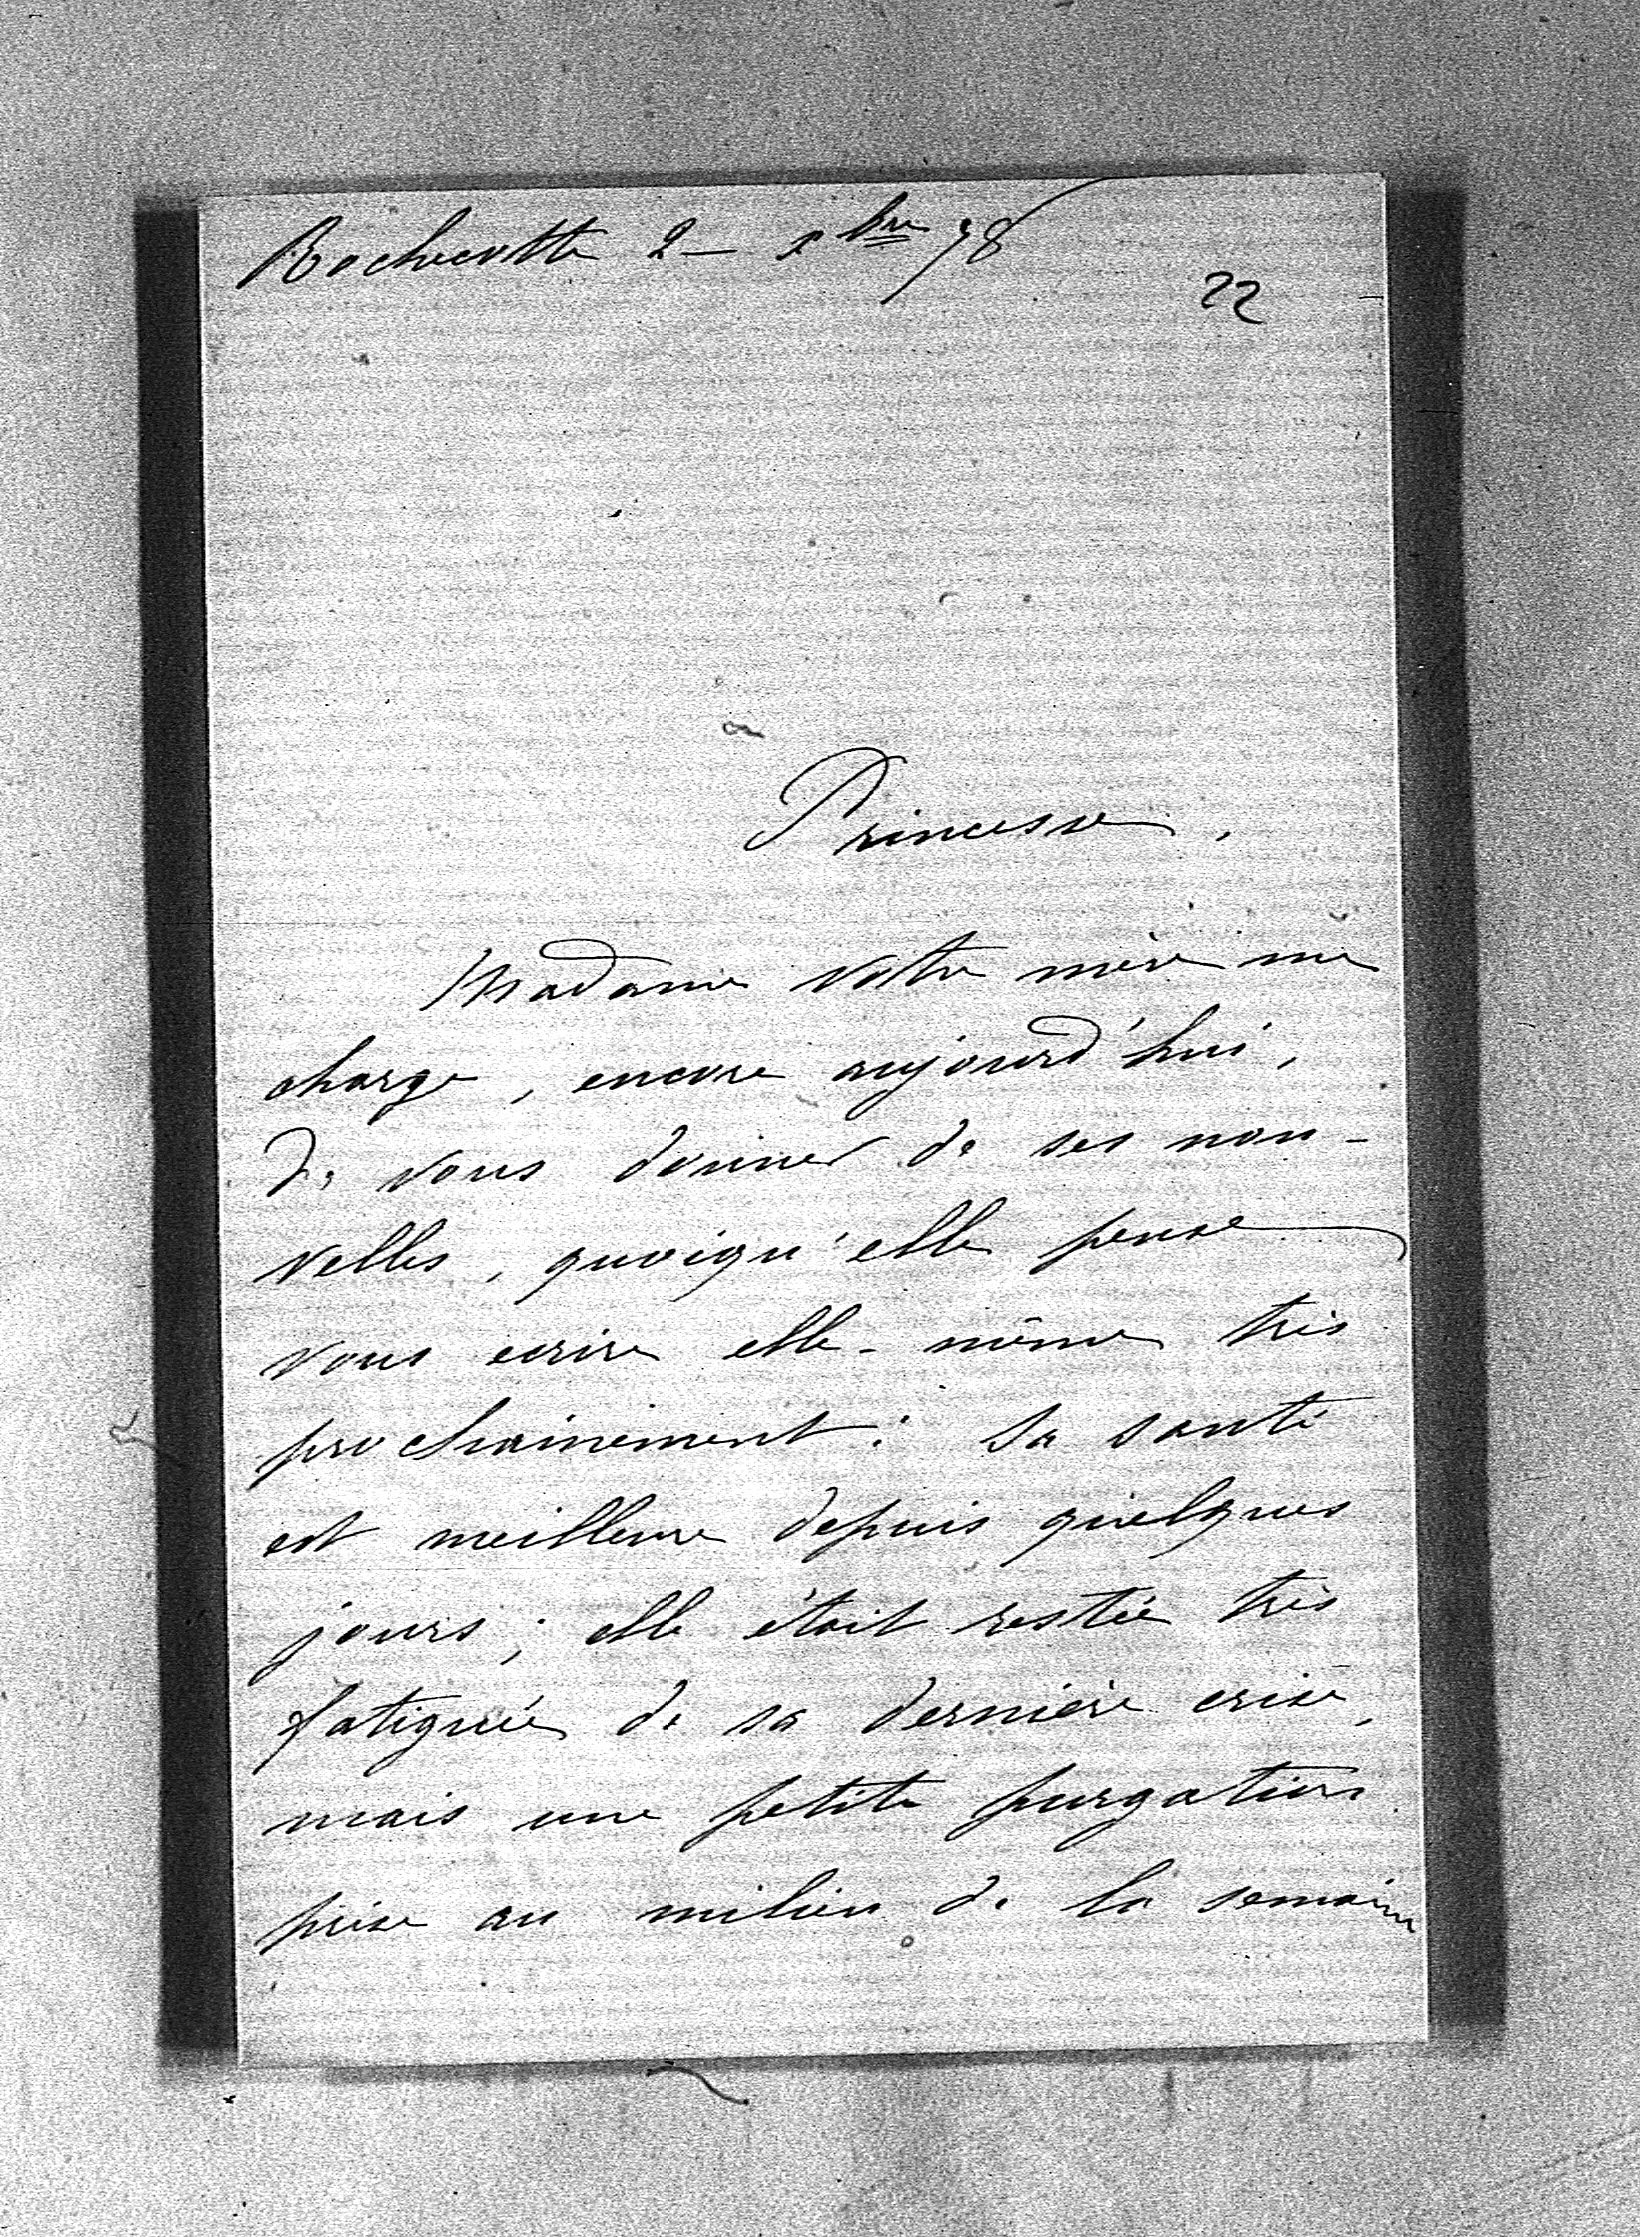 Rochecotte 2 - xbre 78
22
Princesse,
Madame votre mère me
charge, encore aujourd'hui,
de vous donner de ses nou-
velles, quoiqu'elle pense
vous ecrire elle-même très
prochainement: sa santé
est meilleure depuis quelques
jours; elle était restée très
fatiguée de sa dernière crise,
mais une petite purgation
prise au milieu de la semaine